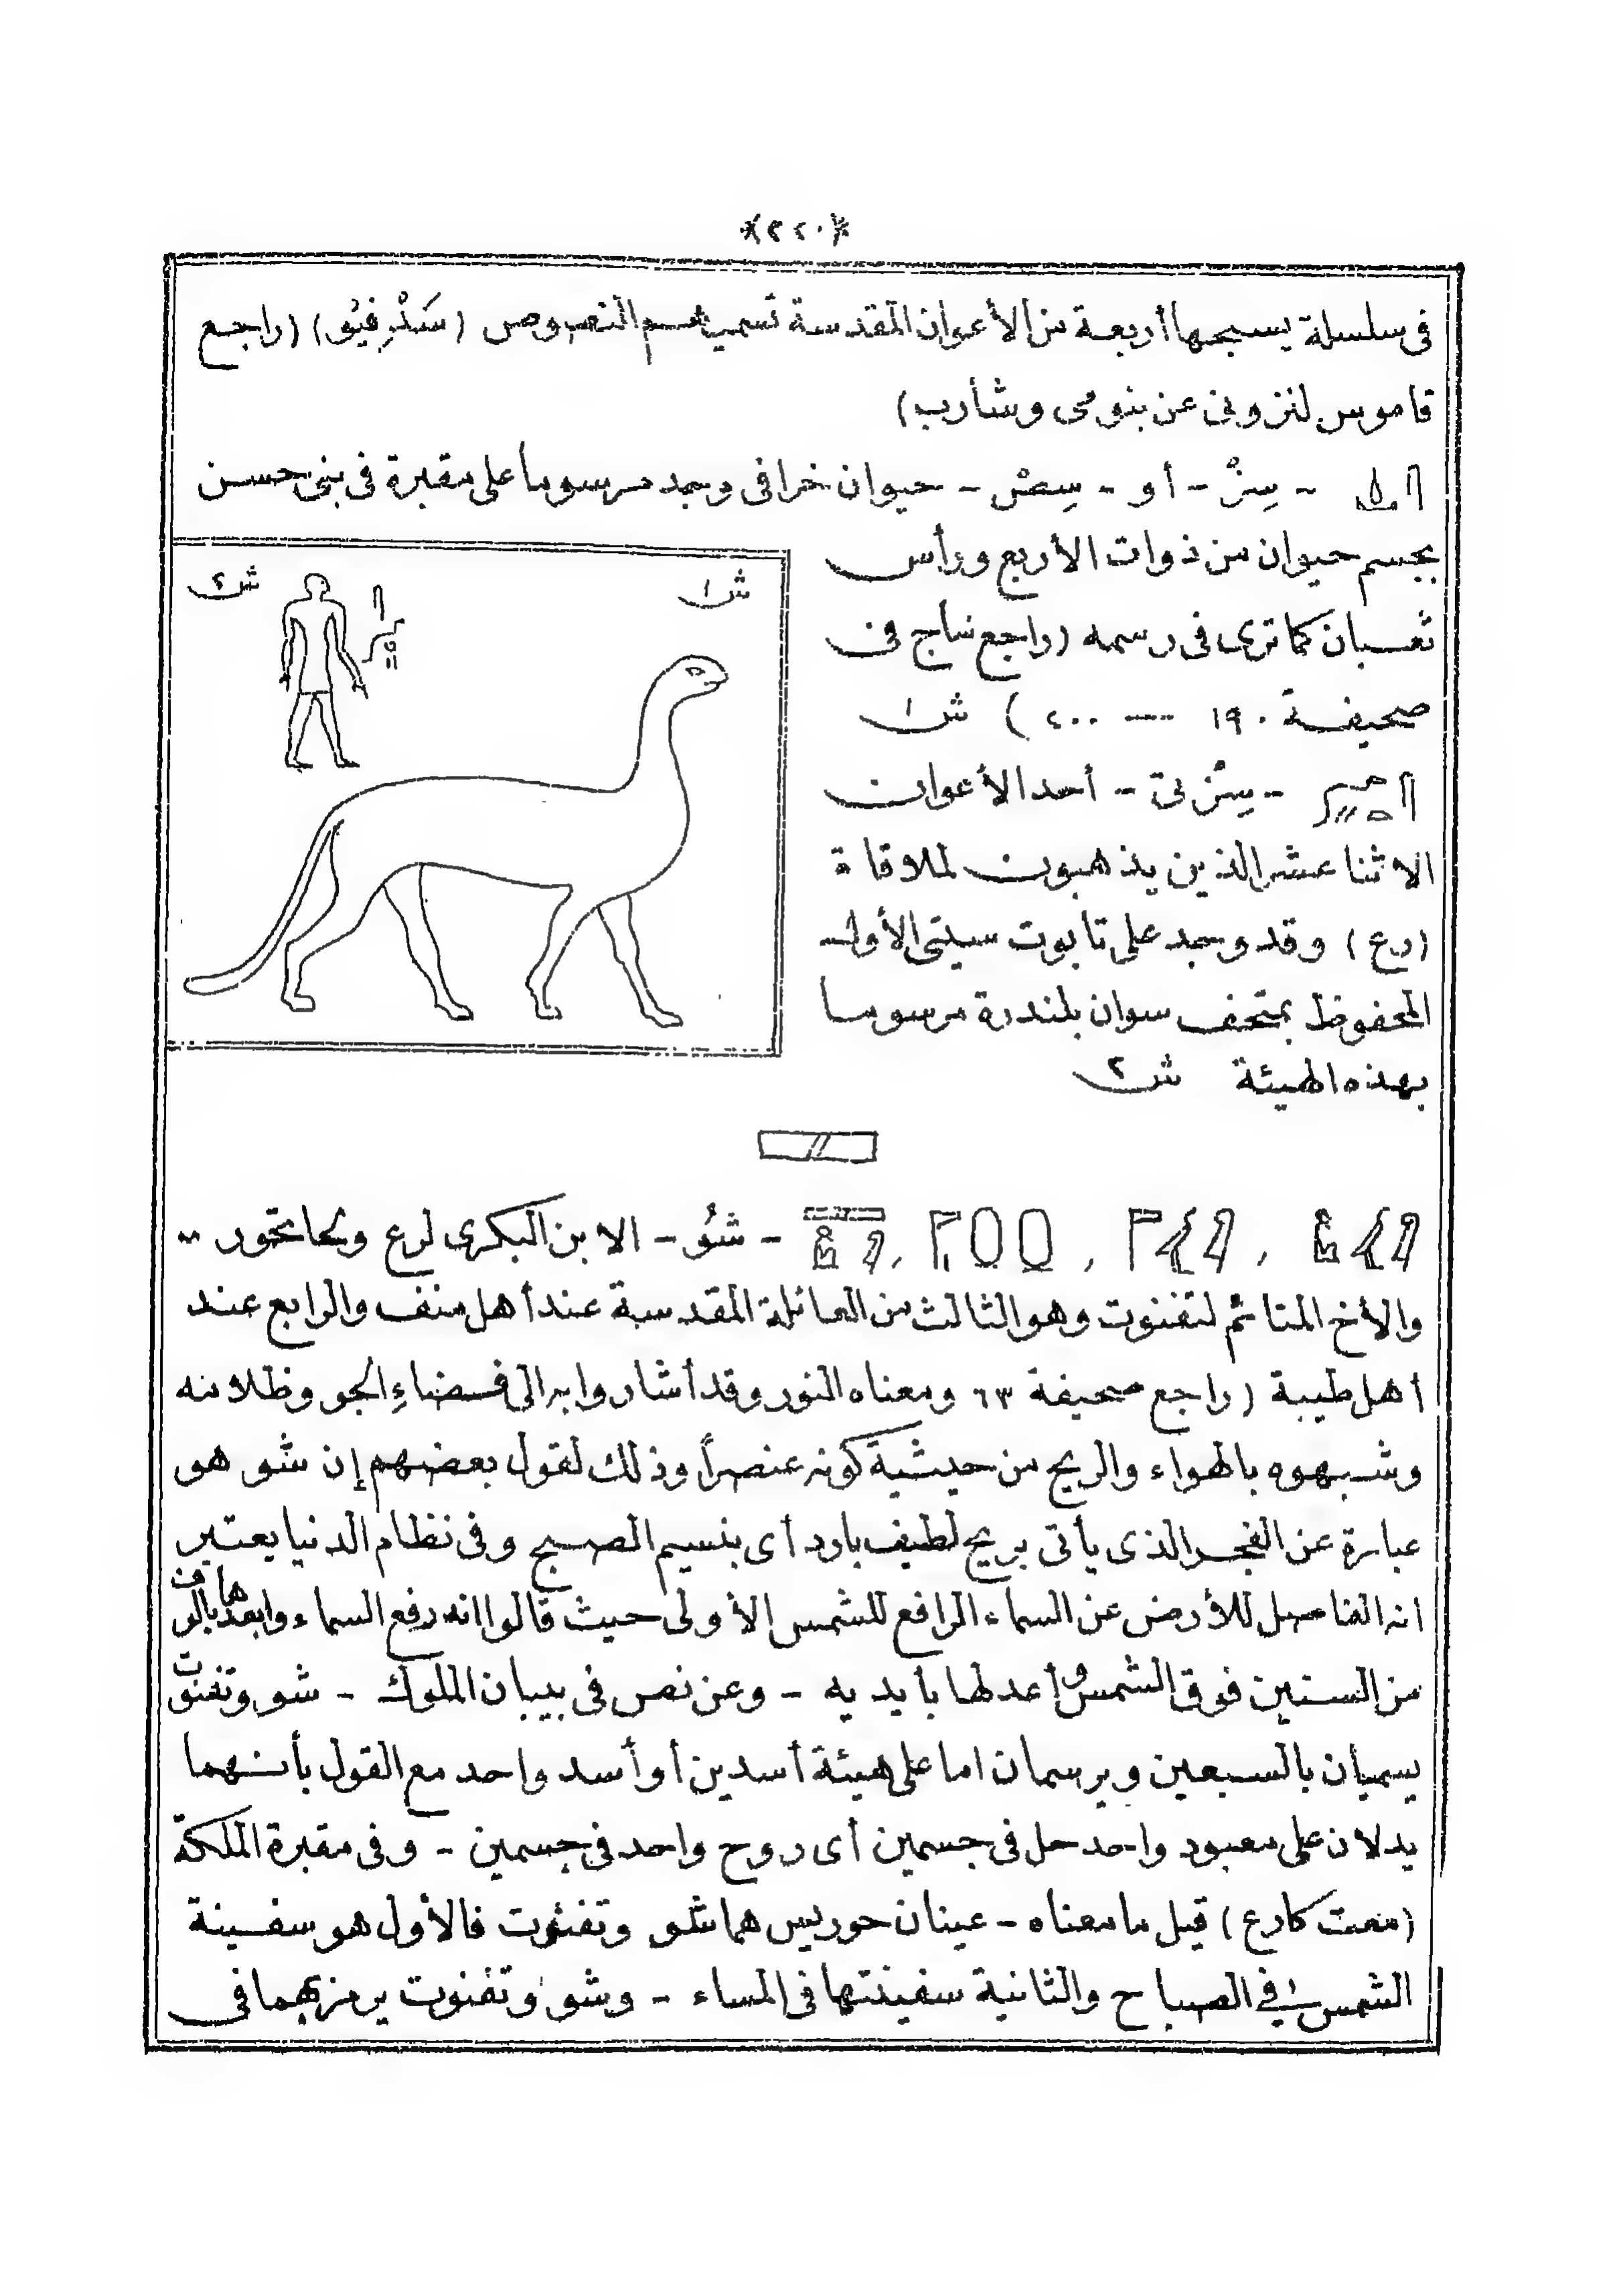 *(٢٢٠)*
فى سلسلة يسحبها أربعة من الأعوان المقدسة تسميهم النصوص (سَتْرِفِيُو) (راجع
قاموس لنزونى عن بنومى وشارب)
- سِزْ - أو - سِصْ - حيوان خرافى وجد مرسوما على مقبرة فى بنى حسن
بجسم حيوان من ذوات الأربع ورأس
ثعبان كما ترى فى رسمه (راجع شاج فى
صحيفة ١٩٠ — ٤٠٠) ش١
- أحد الأعوان
الاثنا عشر الذين يذهبون لملاقاة
(رع) وقد وجد على تابوت سيتى الأول
المحفوظ بمتحف سوان بلندرة مرسوما
بهذه الهيئة ش٢
ش١
ش٢
- شُو - الابن البكرى لرع و
والأخ المتائم لتفنوت وهو الثالث من العائلة المقدسة عند أهل منف والرابع عند
أهل طيبة (راجع صحيفة ٦٣ ومعناه النور وقد أشاروا به الى فضاءِ الجو وظلامه
وشبهوه بالهواء والريح من حيثية كونه عنصراً وذلك لقول بعضهم إن شو هو
عبارة عن الفجر الذى يأتى بريح لطيف بارد أى بنسيم الصبح وفى نظام الدنيا يعتبر
انه الفاصل للأرض عن السماء الرافع للشمس الأولى حيث قالوا انه رفع السماء وابعدها بالوف
من السنين فوق الشمس وأعدلها بأيديه - وعن نص فى بيبان الملوك - شو وتفنوت
يسميان بالسبعين ويرسمان اما على هيئة أسدين أو أسد واحد مع القول بأنهما
يدلان على معبود واحد حل فى جسمين أى روح واحد فى جسمين - وفى مقبرة الملكة
(معت كارع) قيل ما معناه - عينان حوريس هما شو وتفنوت فالأول هو سفينة
الشمس فى الصباح والثانية سفينتها فى المساء - وشو وتفنوت يرمز بهما فى